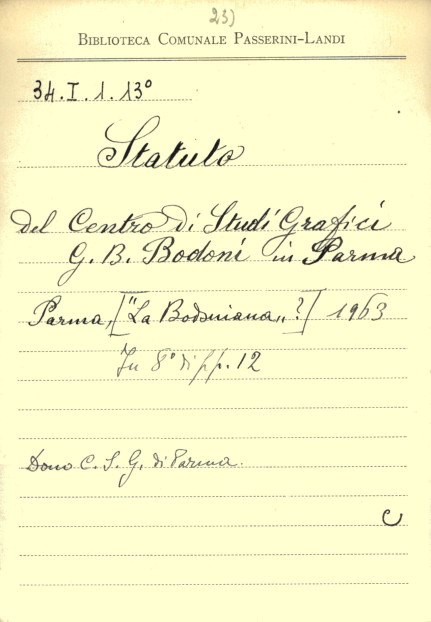 23)
BIBLIOTECA COMUNALE PASSERINI-LANDI
34.I.1.13°
Statuto
del Centro di Studi Grafici
G. B. Bodoni in Parma
Parma, ["La Bodoniana„?] 1963
In 8° di pp. 12
Dono C. S. G. di Parma.
C